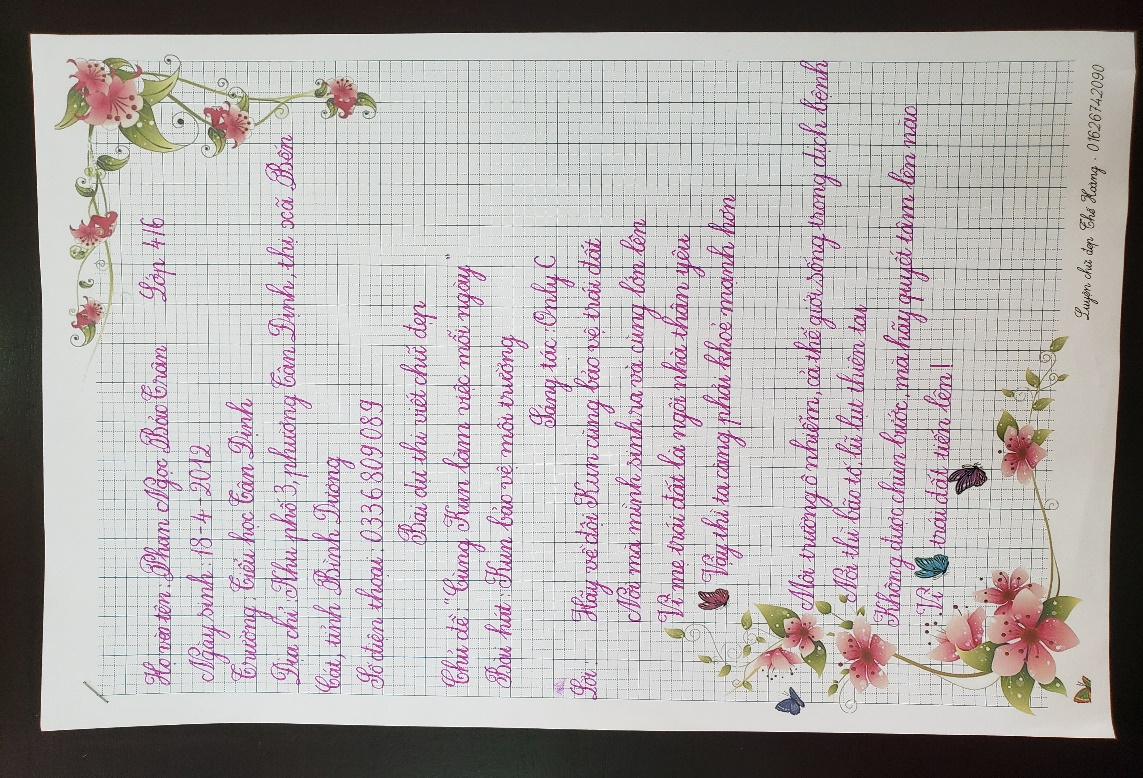 Họ và tên: Phan Ngọc Bảo Trân Lớp 4/6
Ngày sinh: 13-4-2012
Trường: Tiểu học Tân Định
Địa chỉ: Khu phố 3, phường Tân Định, thị xã Bến
Cát, tỉnh Bình Dương
Số điện thoại: 0336809089
Bài dự thi viết chữ đẹp
Chủ đề: "Cùng Kun làm việc mỗi ngày"
Bài hát: Kun bảo vệ môi trường
Sáng tác: Only C
Lời:
Hãy về đội Kun cùng bảo vệ trái đất
Nơi mà mình sinh ra và cùng lớn lên
Vì mẹ trái đất là ngôi nhà thân yêu
Vậy thì ta càng phải khỏe mạnh hơn
Môi trường ô nhiễm, cả thế giới sống trong dịch bệnh
Nỗi thì bão tố, lũ lụt thiên tai
Không được chùn bước, mà hãy quyết tâm lên nào
Vì trái đất, tiến lên!
Luyện chữ đẹp Thế Hoàng - 01626742090